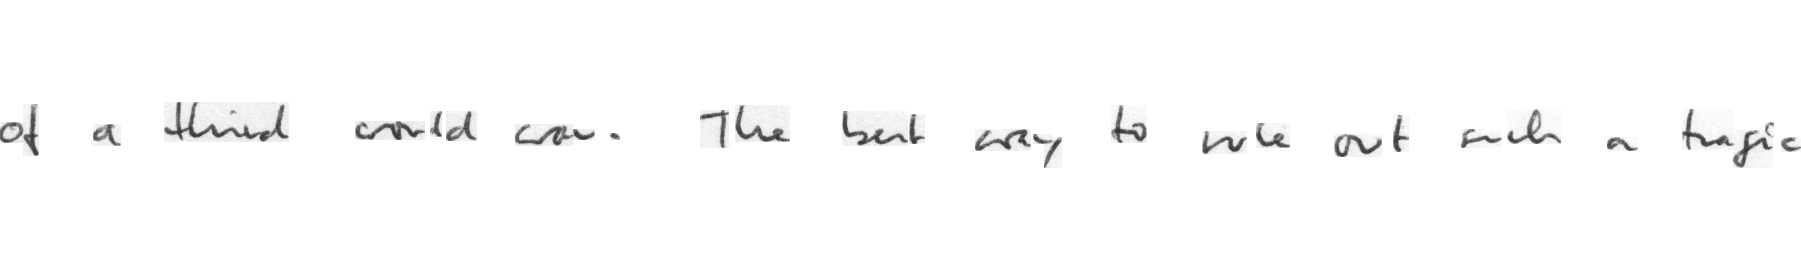 of a third world war. The best way to rule out such a tragic